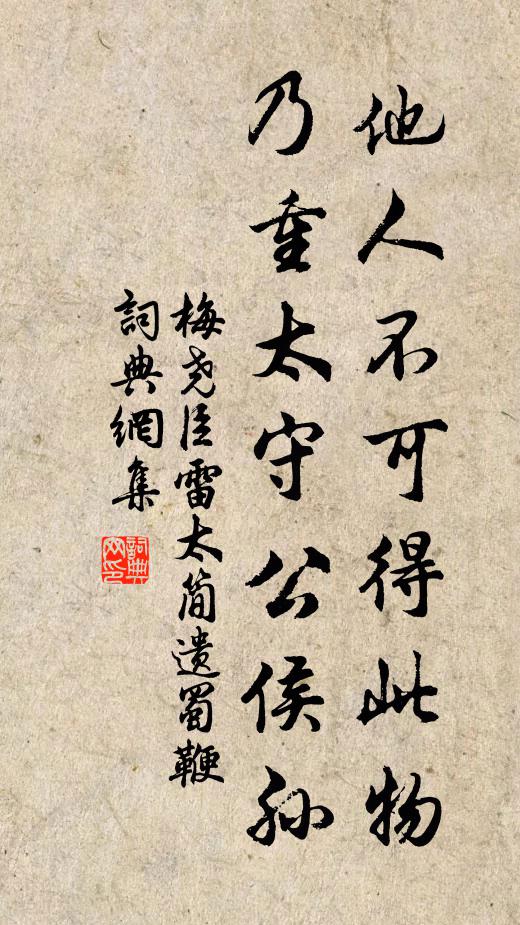 他人不可得此物
乃重太守公侯孙
梅尧臣雷太简遗蜀鞭
詞典網集
詞典网印